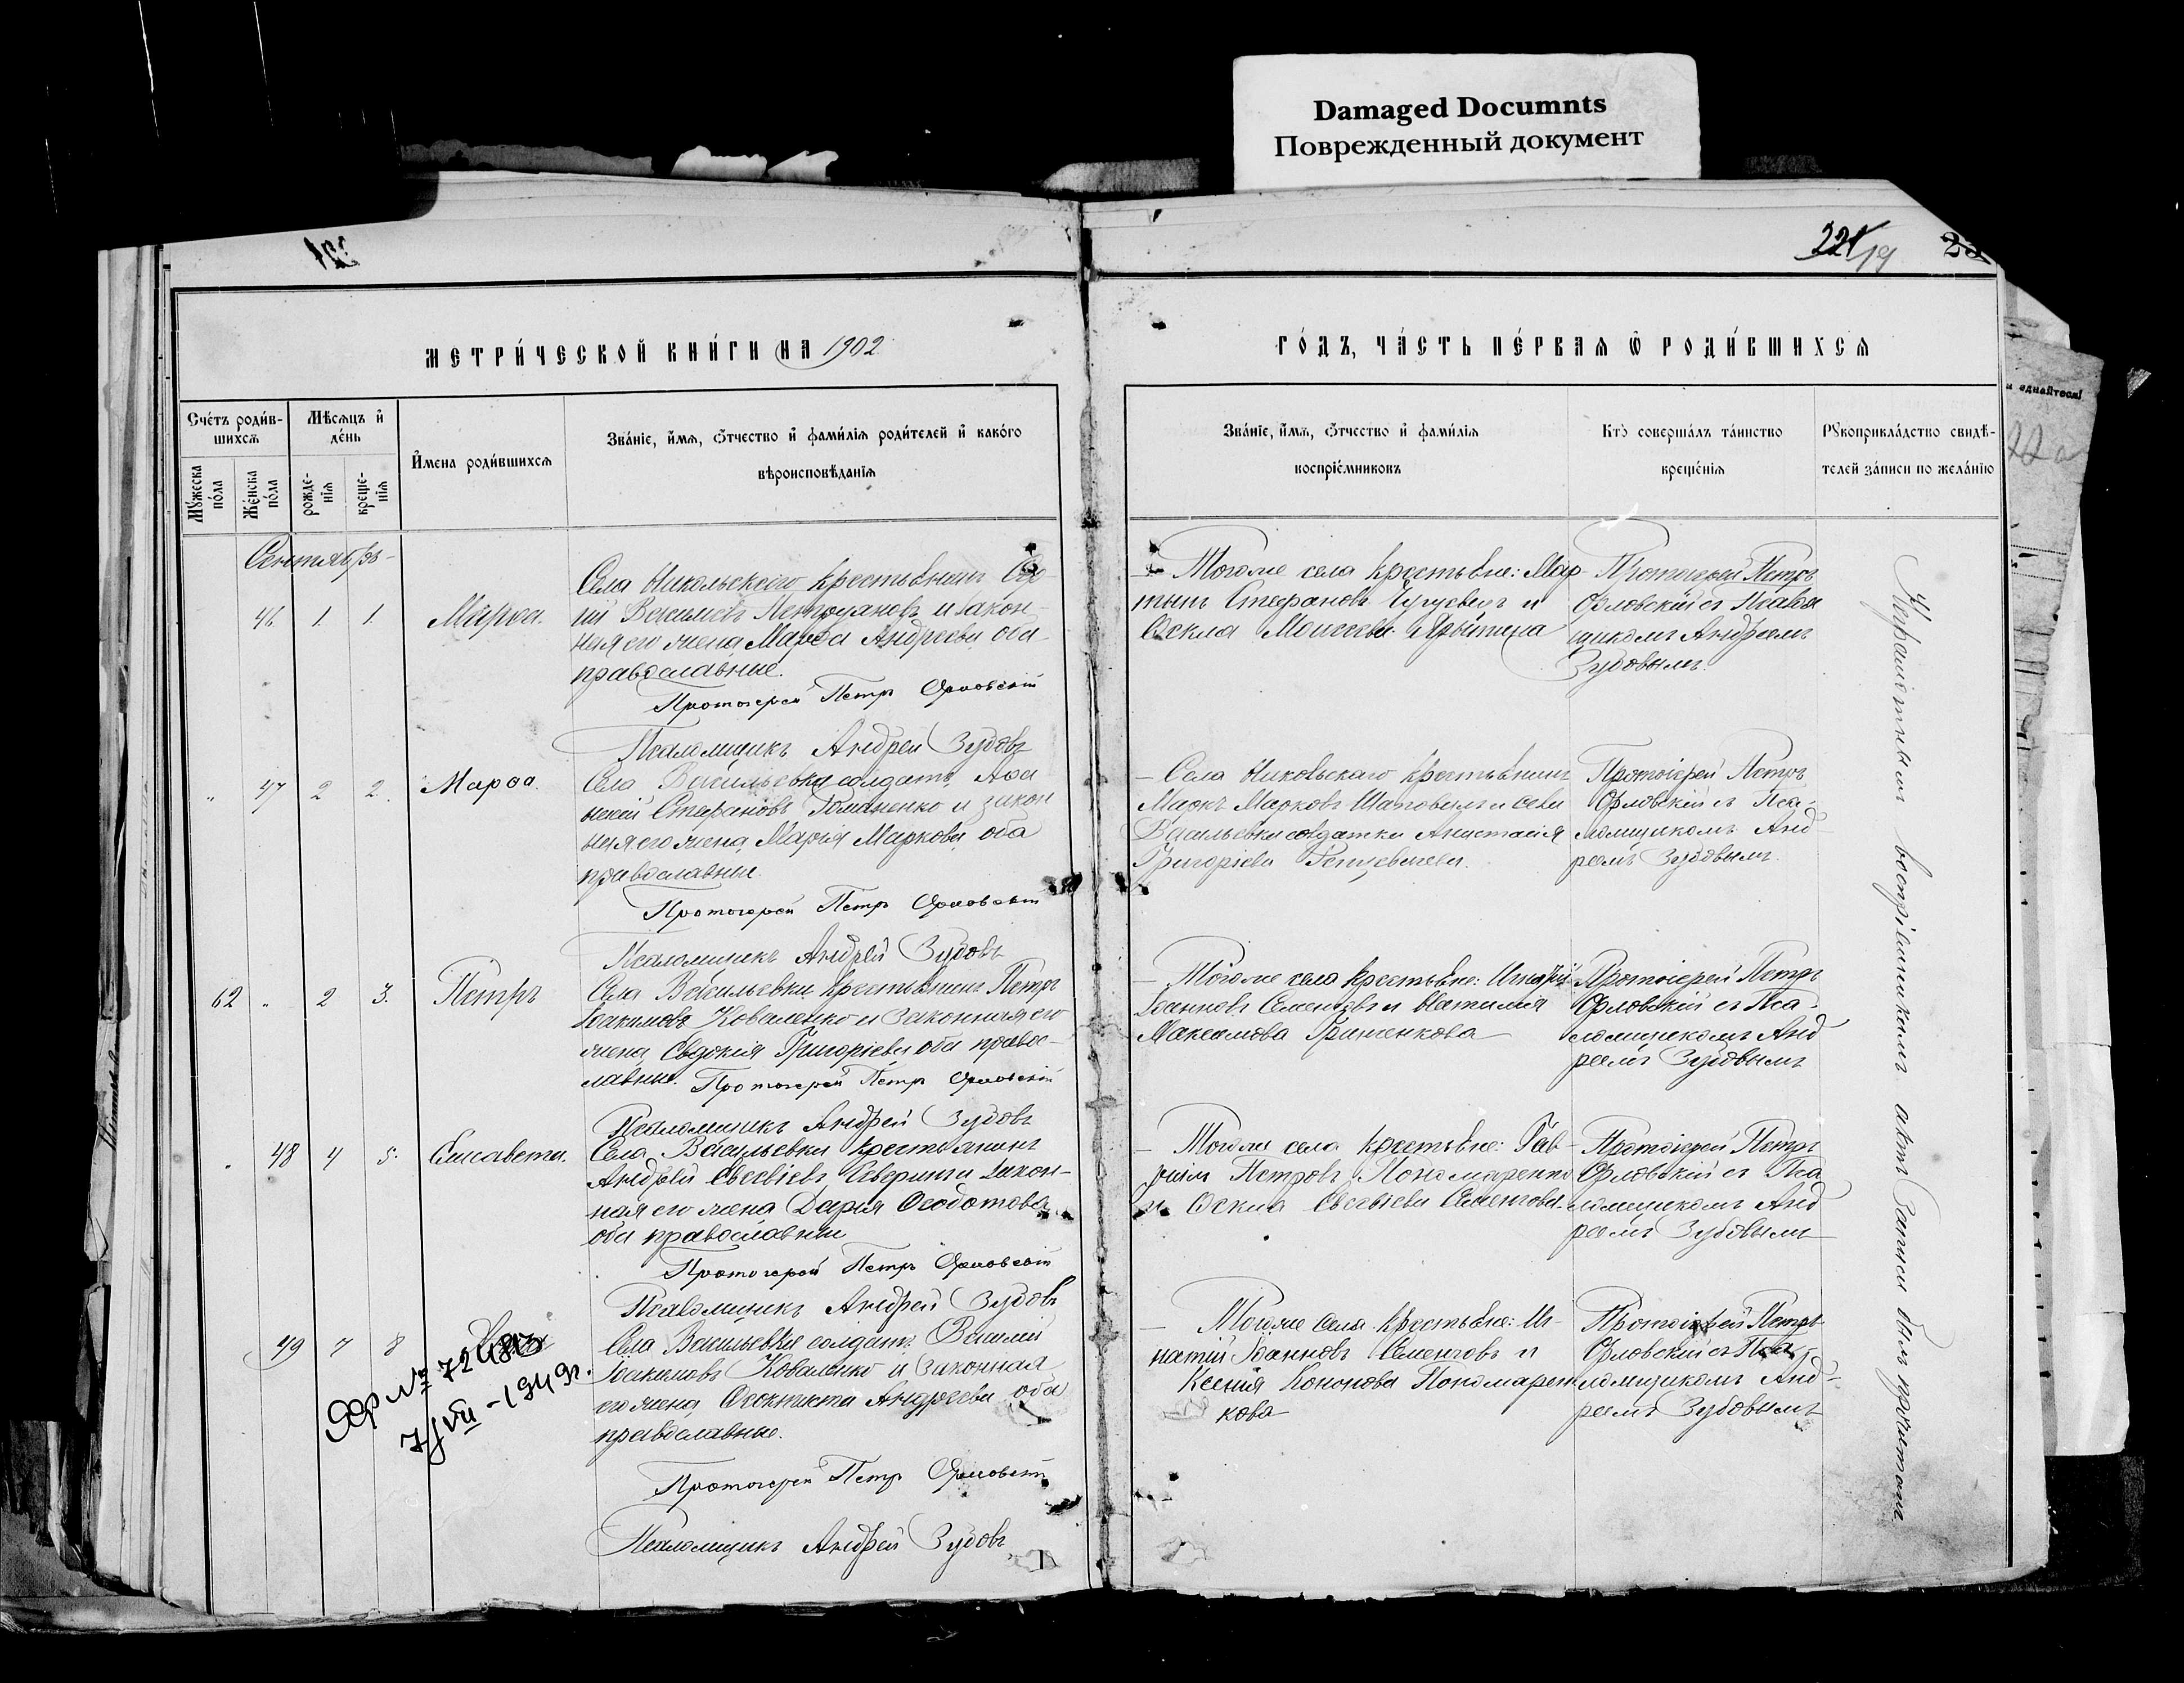 Damaged Documnts
Поврежденный документ
221/19
МЕТРИ́ЧЕСКОЙ КНИ́ГИ НА 1902
ГО́ДЪ, ЧА́СТЬ ПЕ́РВАѦ Ѡ҆ РОДИ́ВШИХСѦ
Сче́тъ роди́в-
шихсѧ
Мѣ́сѧцъ и҆
де́нь
Мꙋ́жеска
по́ла
Же́нска
по́ла
рожде-
нїѧ
креще-
нїѧ
И҆́мена роди́вшихсѧ
Зва́нїе, и҆́мѧ, ѻ҆́тчество и҆ фами́лїѧ роди́телей и҆ како́го
вѣроисповѣ́данїѧ
Зва́нїе, и҆́мѧ, ѻ҆́тчество и҆ фами́лїѧ
воспрїе́мниковъ
Кто̀ соверша́лъ та́инство
креще́нїѧ
Рꙋкоприкла́дство свидѣ́-
телей за́писи по жела́нїю
Сентябрь
46 1. 1. Марѳа.
Села Никольскаго крестьянинъ
Васильевъ и закон-
ная его жена Марѳа Андреева оба
православные.
Протоіерей Петръ Орловскій
Псаломщикъ Андрей Зубовъ
Тогоже села крестьяне: Мар-
тинъ Стефановъ и
Ѳекла Моисеева
Протоіерей Петръ
Орловскій съ Псалом
щикомъ Андреемъ
Зубовымъ.
" 47 2 2. Марѳа.
Села Васильевки солдатъ Аѳа
насій Стефановъ Романенко и закон
ная его жена Марія Маркова оба
православные.
Протоіерей Петръ Орловскій
Псаломщикъ Андрей Зубовъ
— Села Никольскаго крестьянинъ
Маркъ Марковъ и села
Васильевки солдатка Анастасія
Григоріева
Протоіерей Петръ
Орловскій съ Пса-
ломщикомъ Анд
реемъ Зубовымъ.
62 " 2 3. Петръ
Села Васильевки крестьянинъ Петръ
Іоакимовъ Коваленко и законная его
жена Евдокія Григоріева оба право-
славные. Протоіерей Петръ Орловскій
Псаломщикъ Андрей Зубовъ
— Тогоже села крестьяне: Игнатій
Іоанновъ Семенцовъ и Наталія
Максимова Гришенкова
Протоіерей Петръ
Орловскій съ Пса-
ломщикомъ Анд
реемъ Зубовымъ
" 48 4 5. Елисавета.
Села Васильевки крестьянинъ
Андрей Евсевіевъ и закон-
ная его жена Дарія Ѳеодотова
оба православные
Протоіерей Петръ Орловскій
Псаломщикъ Андрей Зубовъ
— Тогоже села крестьяне: Гав-
риилъ Петровъ Пономаренко
и Ѳекла Евсевіева Семенцова.
Протоіерей Петръ
Орловскій съ Пса
ломщикомъ Анд
реемъ Зубовымъ
49 7 8
7/VII - 1949г.
Села Васильевки солдатъ Василій
Іоакимовъ Коваленко и законная
его жена Ѳеоктиста Андреева оба
православные.
Протоіерей Петръ Орловскій
Псаломщикъ Андрей Зубовъ
— Тогоже села крестьяне: Иг-
натій Іоанновъ Семенцовъ и
Ксенія Кононова Пономарен-
кова
Протоіерей Петръ
Орловскій съ Пса-
ломщикомъ Анд-
реемъ Зубовымъ
воспріемникамъ актъ записи былъ прочитанъ